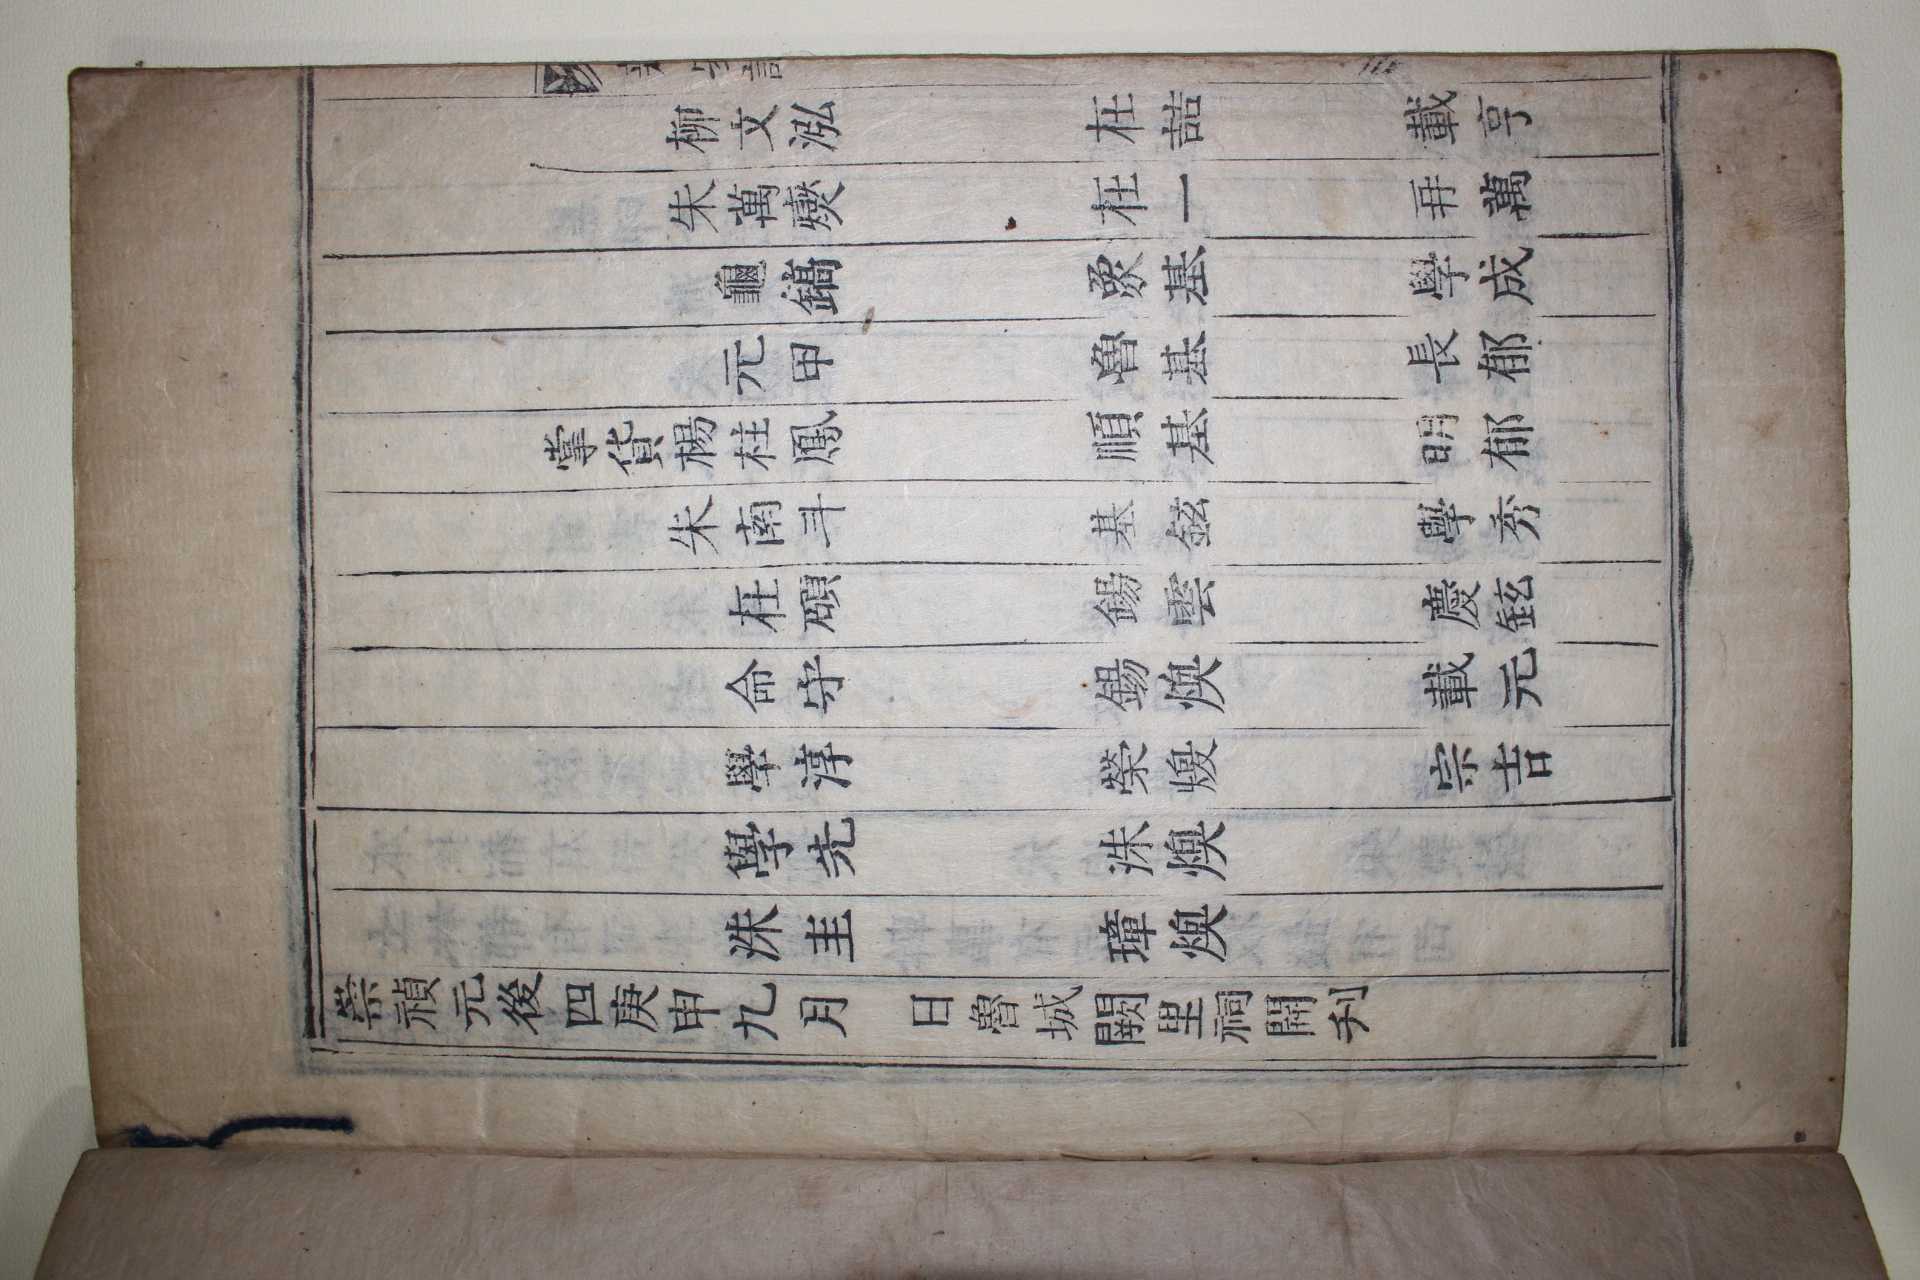 柳文泓 在喆 載亨
朱萬 在一 再萬
龜鎬 象基 學成
元甲 魯基 長郁
掌貨楊柱鳳 順基 明郁
朱南斗 基鉉 學秀
在碩 錫雲 慶鉉
命守 錫煥 載元
學淳 榮煖 宗吉
學先 洙煥
洙圭 璋煥
崇禎元後四庚申九月 日魯城闕里祠開刊